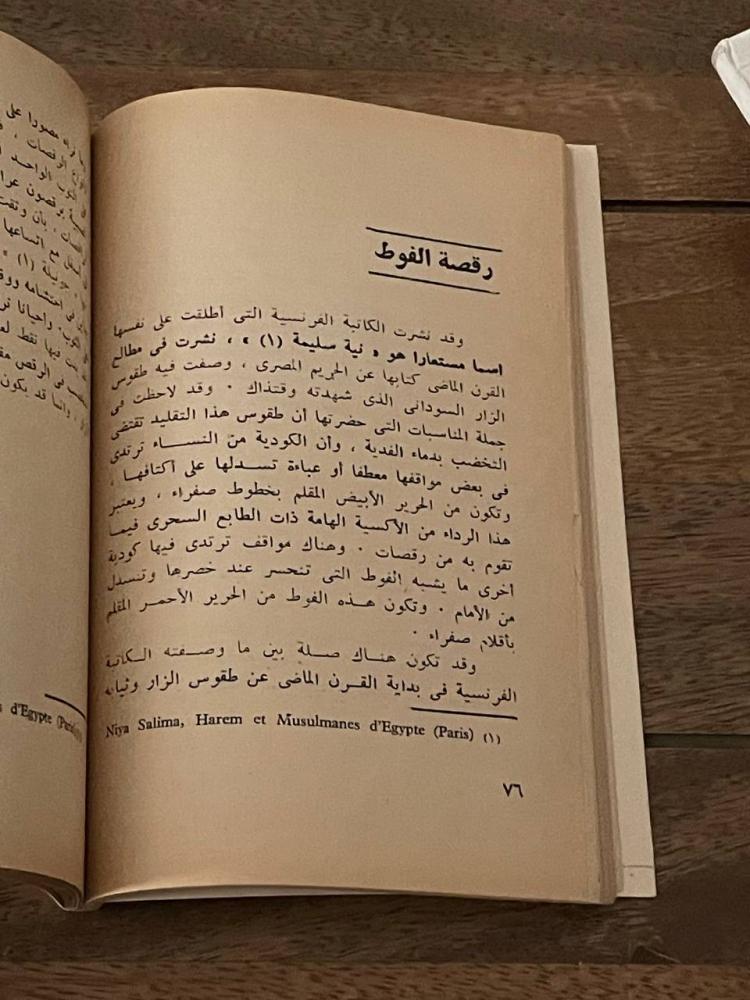 رقصة الفوط
وقد نشرت الكاتبة الفرنسية التى أطلقت على نفسها
اسما مستعارا هو « نية سليمة (١) » ، نشرت فى مطالع
القرن الماضى كتابها عن الحريم المصرى ، وصفت فيه طقوس
الزار السودانى الذى شهدته وقتذاك . وقد لاحظت فى
جملة المناسبات التى حضرتها أن طقوس هذا التقليد تقتضى
التخضب بدماء الفدية ، وأن الكودية من النساء ترتدى
فى بعض مواقفها معطفا أو عباءة تسدلها على أكتافها ،
وتكون من الحرير الأبيض المقلم بخطوط صفراء ، ويعتبر
هذا الرداء من الأكسية الهامة ذات الطابع السحرى فيما
تقوم به من رقصات . وهناك مواقف ترتدى فيها كودية
أخرى ما يشبه الفوط التى تنحسر عند خصرها وتنسدل
من الأمام . وتكون هذه الفوط من الحرير الأحمر المقلم
بأقلام صفراء .
وقد تكون هناك صلة بين ما وصفته الكاتبة
الفرنسية فى بداية القرن الماضى عن طقوس الزار وثيابه
Niya Salima, Harem et Musulmanes d'Egypte (Paris) (١)
٧٦
مصورا على
الرقصات ،
الواحد
يرقصون
، بأن
مع اتساعها
(١) »
فى احتشامه
. وأحيانا
فيها نقط
فى الرقص
، وانما قد يكون
d'Egypte (Paris)